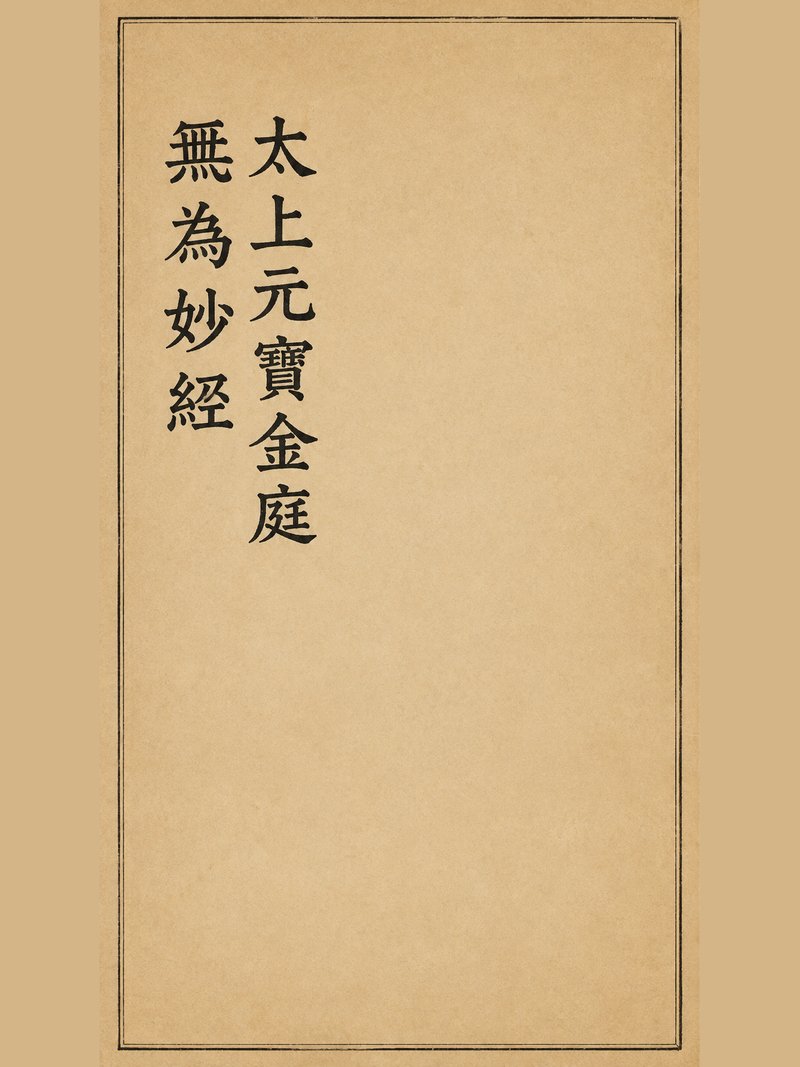 太上元寶金庭
無為妙經